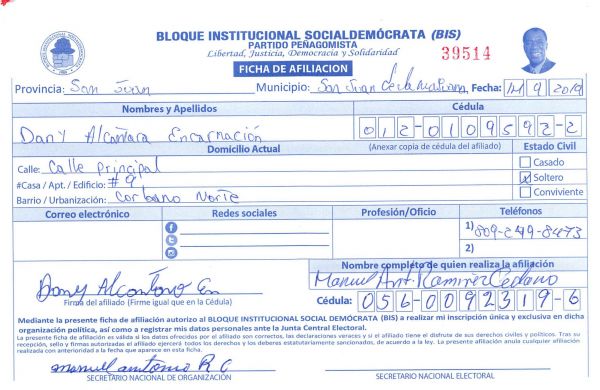 BLOQUE INSTITUCIONAL SOCIALDEMÓCRATA (BIS)
PARTIDO PEÑAGOMISTA
Libertad, Justicia, Democracia y Solidaridad
39514
FICHA DE AFILIACION
Provincia: San Juan Municipio: San Juan de la Maguana Fecha: 14/9/2019
Nombres y Apellidos Cédula
Dany Alcantara Encarnación 012-0109592-2
Domicilio Actual (Anexar copia de cédula del afiliado) Estado Civil
Calle: Calle Principal Casado
#Casa / Apt. / Edificio: #9 Soltero
Barrio / Urbanización: Corbano Norte Conviviente
Correo electrónico Redes sociales Profesión/Oficio Teléfonos
1) 809-249-8473
2)
Nombre completo de quien realiza la afiliación
Dany Alcantara En Manuel Ant. Ramirez Cedano
Firma del afiliado (Firme igual que en la Cédula) Cédula: 056-0092319-6
Mediante la presente ficha de afiliación autorizo al BLOQUE INSTITUCIONAL SOCIAL DEMÓCRATA (BIS) a realizar mi inscripción única y exclusiva en dicha
organización política, así como a registrar mis datos personales ante la Junta Central Electoral.
La presente ficha de afiliación es válida si los datos ofrecidos por el afiliado son correctos, las declaraciones veraces y si el afiliado tiene el disfrute de sus derechos civiles y políticos. Tras su
recepción, sello y firmas autorizadas el afiliado ejercerá todos los derechos y los deberes estatutariamente sancionados, de acuerdo a la ley. La presente afiliación anula cualquier afiliación
realizada con anterioridad a la fecha que aparece en esta ficha.
manuel antonio R C
SECRETARIO NACIONAL DE ORGANIZACIÓN SECRETARIO NACIONAL ELECTORAL